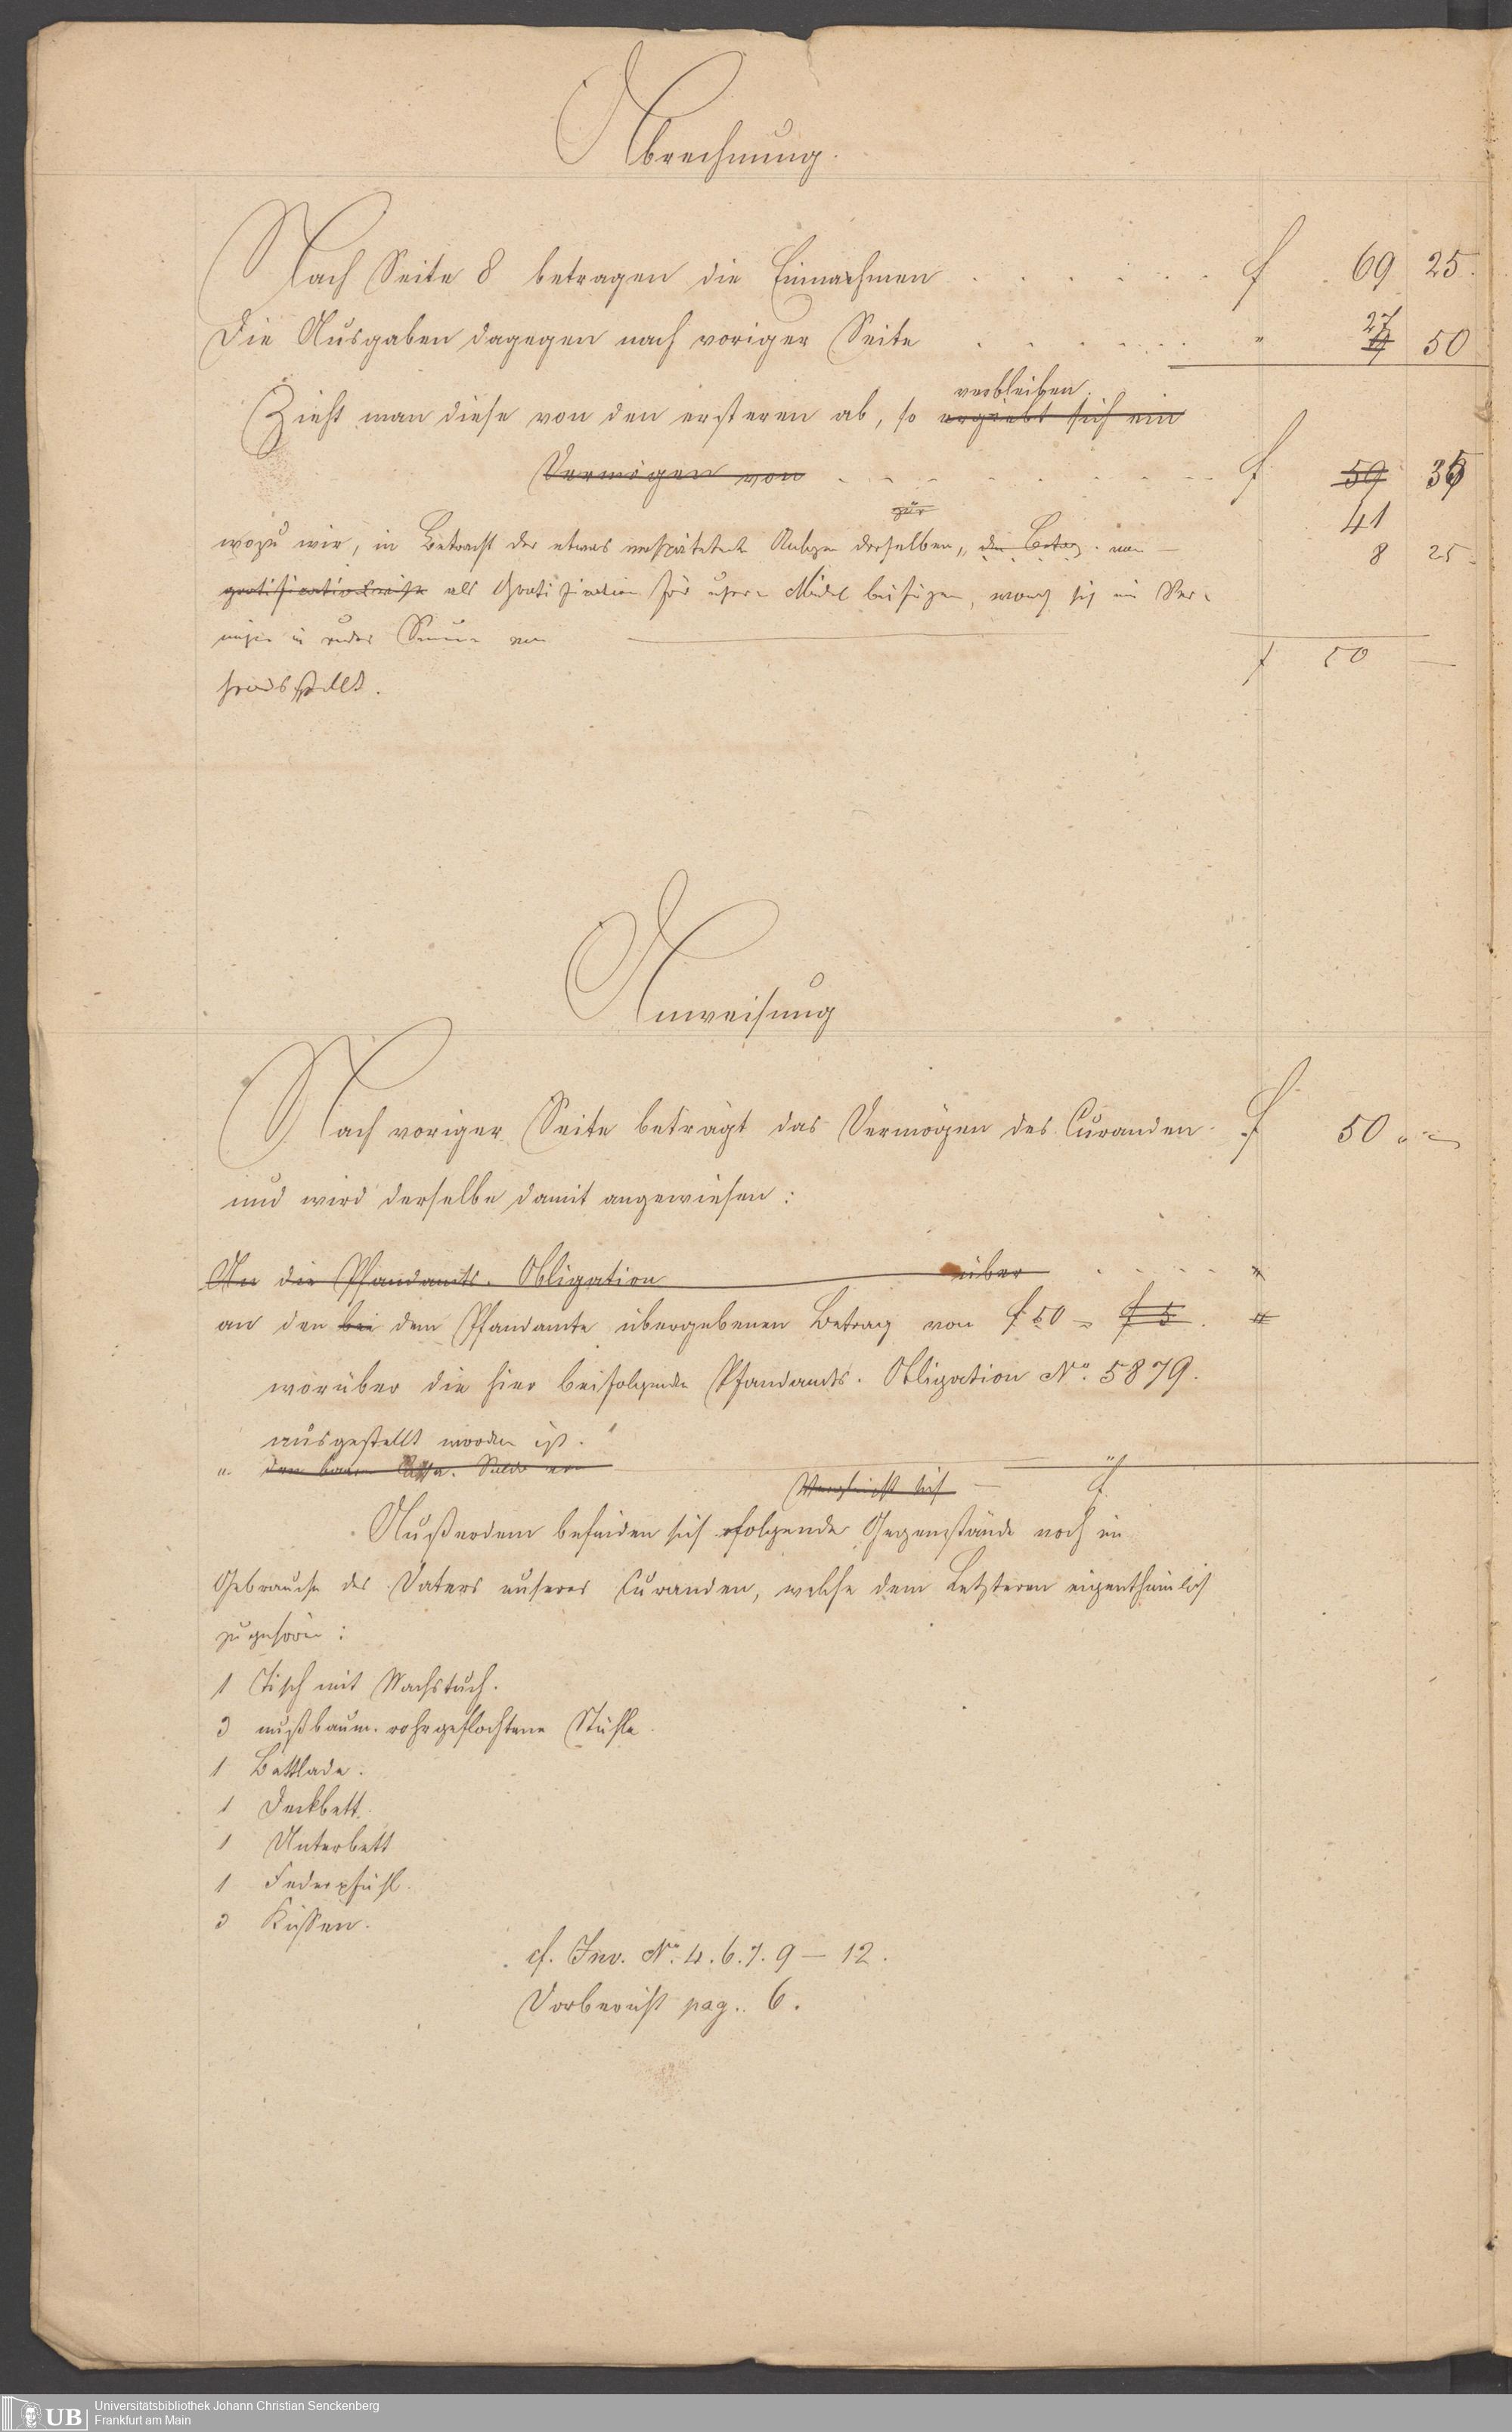 Abrechnung.
Nach Seite 8 betragen die Einnahmen . . . . . . f 69 25.
Die Ausgaben dagegen nach voriger Seite . . . . . . " 27 50
verbleiben
Zieht man diese von den ersteren ab, so ergiebt sich ein
Vermögen von . . . . . . . . f 59 35
41
wozu wir, in Betracht der etwas verspäteten Anlage derselben, den Betrag von — 8 25
als Gratifikation für unsere Mündel beifügen, wonach sich ein Ver-
mögen in runder Summe von f 50 —
herausstellt.
Anweisung
Nach voriger Seite beträgt das Vermögen des Curanden f 50 „ —
und wird derselbe damit angewiesen:
An die Pfandamts-Obligation über . . . . "
an den bei dem Pfandamte übergebenen Betrag von f 50 – f 5. "
worüber die hier beifolgende Pfandamts-Obligation No. 5879.
ausgestellt worden ist.
" den baaren Cassa-Saldo von "
Vergleicht sich — f
Außerdem befinden sich folgende Gegenstände noch im
Gebrauche des Vaters unseres Curanden, welche dem Letzteren eigenthümlich
zugehören:
1 Tisch mit Wachstuch.
3 nußbaum. rohrgeflochtene Stühle.
1 Bettlade.
1 Deckbett.
1 Unterbett
1 Federpfühl.
3 Kissen.
cf. Inv. No. 4. 6. 7. 9 – 12.
Vorbericht pag. 6.
UB Universitätsbibliothek Johann Christian Senckenberg
Frankfurt am Main